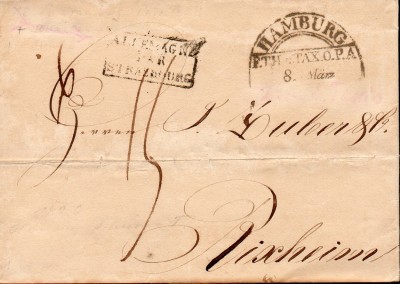 ALLEMAGNE
PAR
STRASBOURG
HAMBURG
FTH. u. TAX. O.P.A.
8. März
J. Zuber & Co.
Rixheim